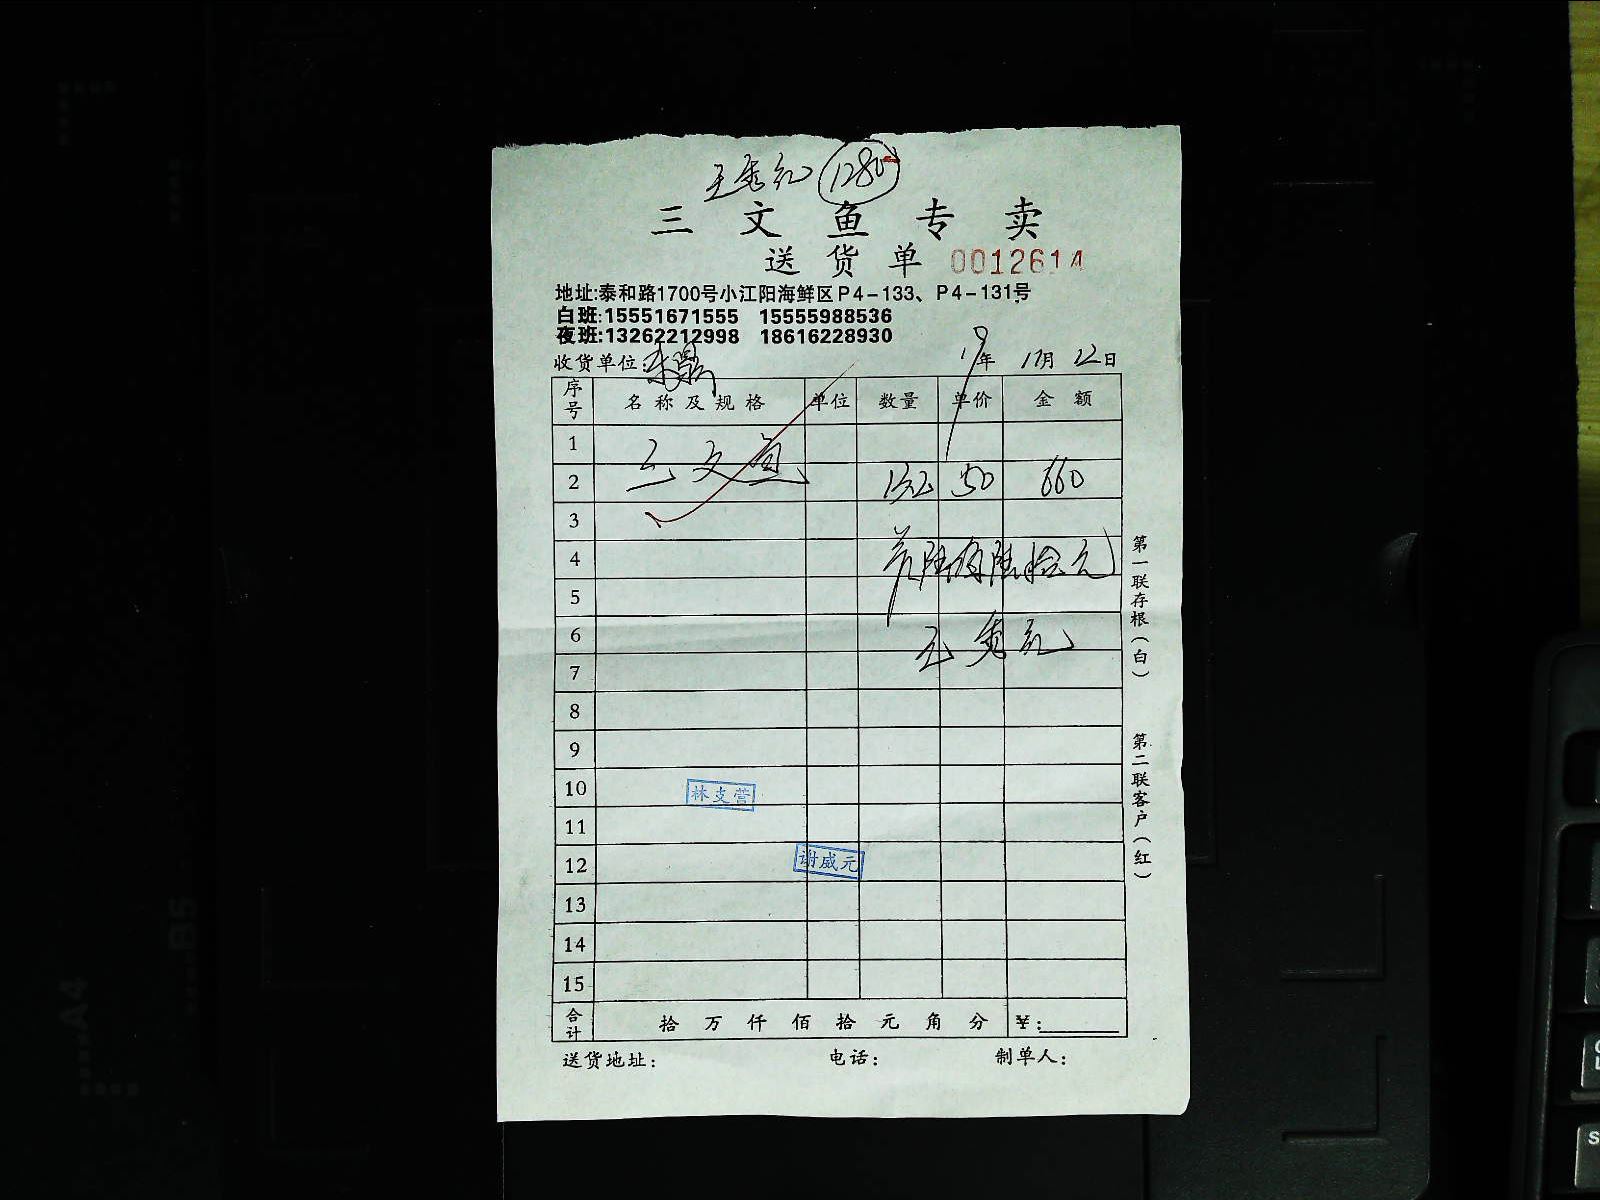 王秀礼 1280
三文鱼专卖
送货单 0012614
地址:泰和路1700号小江阳海鲜区P4-133、P4-131号
白班:15551671555 15555988536
夜班:13262212998 18616228930
收货单位: 19年 12月 22日
序号 名称及规格 单位 数量 单价 金额
1
三文鱼
2 13.2 50 660
3
4 陆佰陆拾元
5
6 王秀礼
7
8
9
10 林支营
11
12 谢威元
13
14
15
合计 拾 万 仟 佰 拾 元 角 分 ¥:
送货地址: 电话: 制单人:
第一联存根(白)
第二联客户(红)
A4
B5